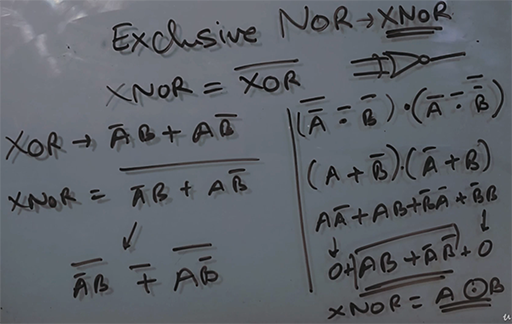 Exclusive NOR → XNOR
XNOR = X̅O̅R̅
XOR → A̅B + AB̅
XNOR = \overline{A̅B + AB̅}
\overline{A̅B} \overline{+} \overline{AB̅}
(A̿ \overline{=} B̅) · (A̅ \overline{=} B̿)
(A + B̅) · (A̅ + B)
AA̅ + AB + B̅A̅ + B̅B
0 + AB + A̅B̅ + 0
XNOR = A ⊙ B